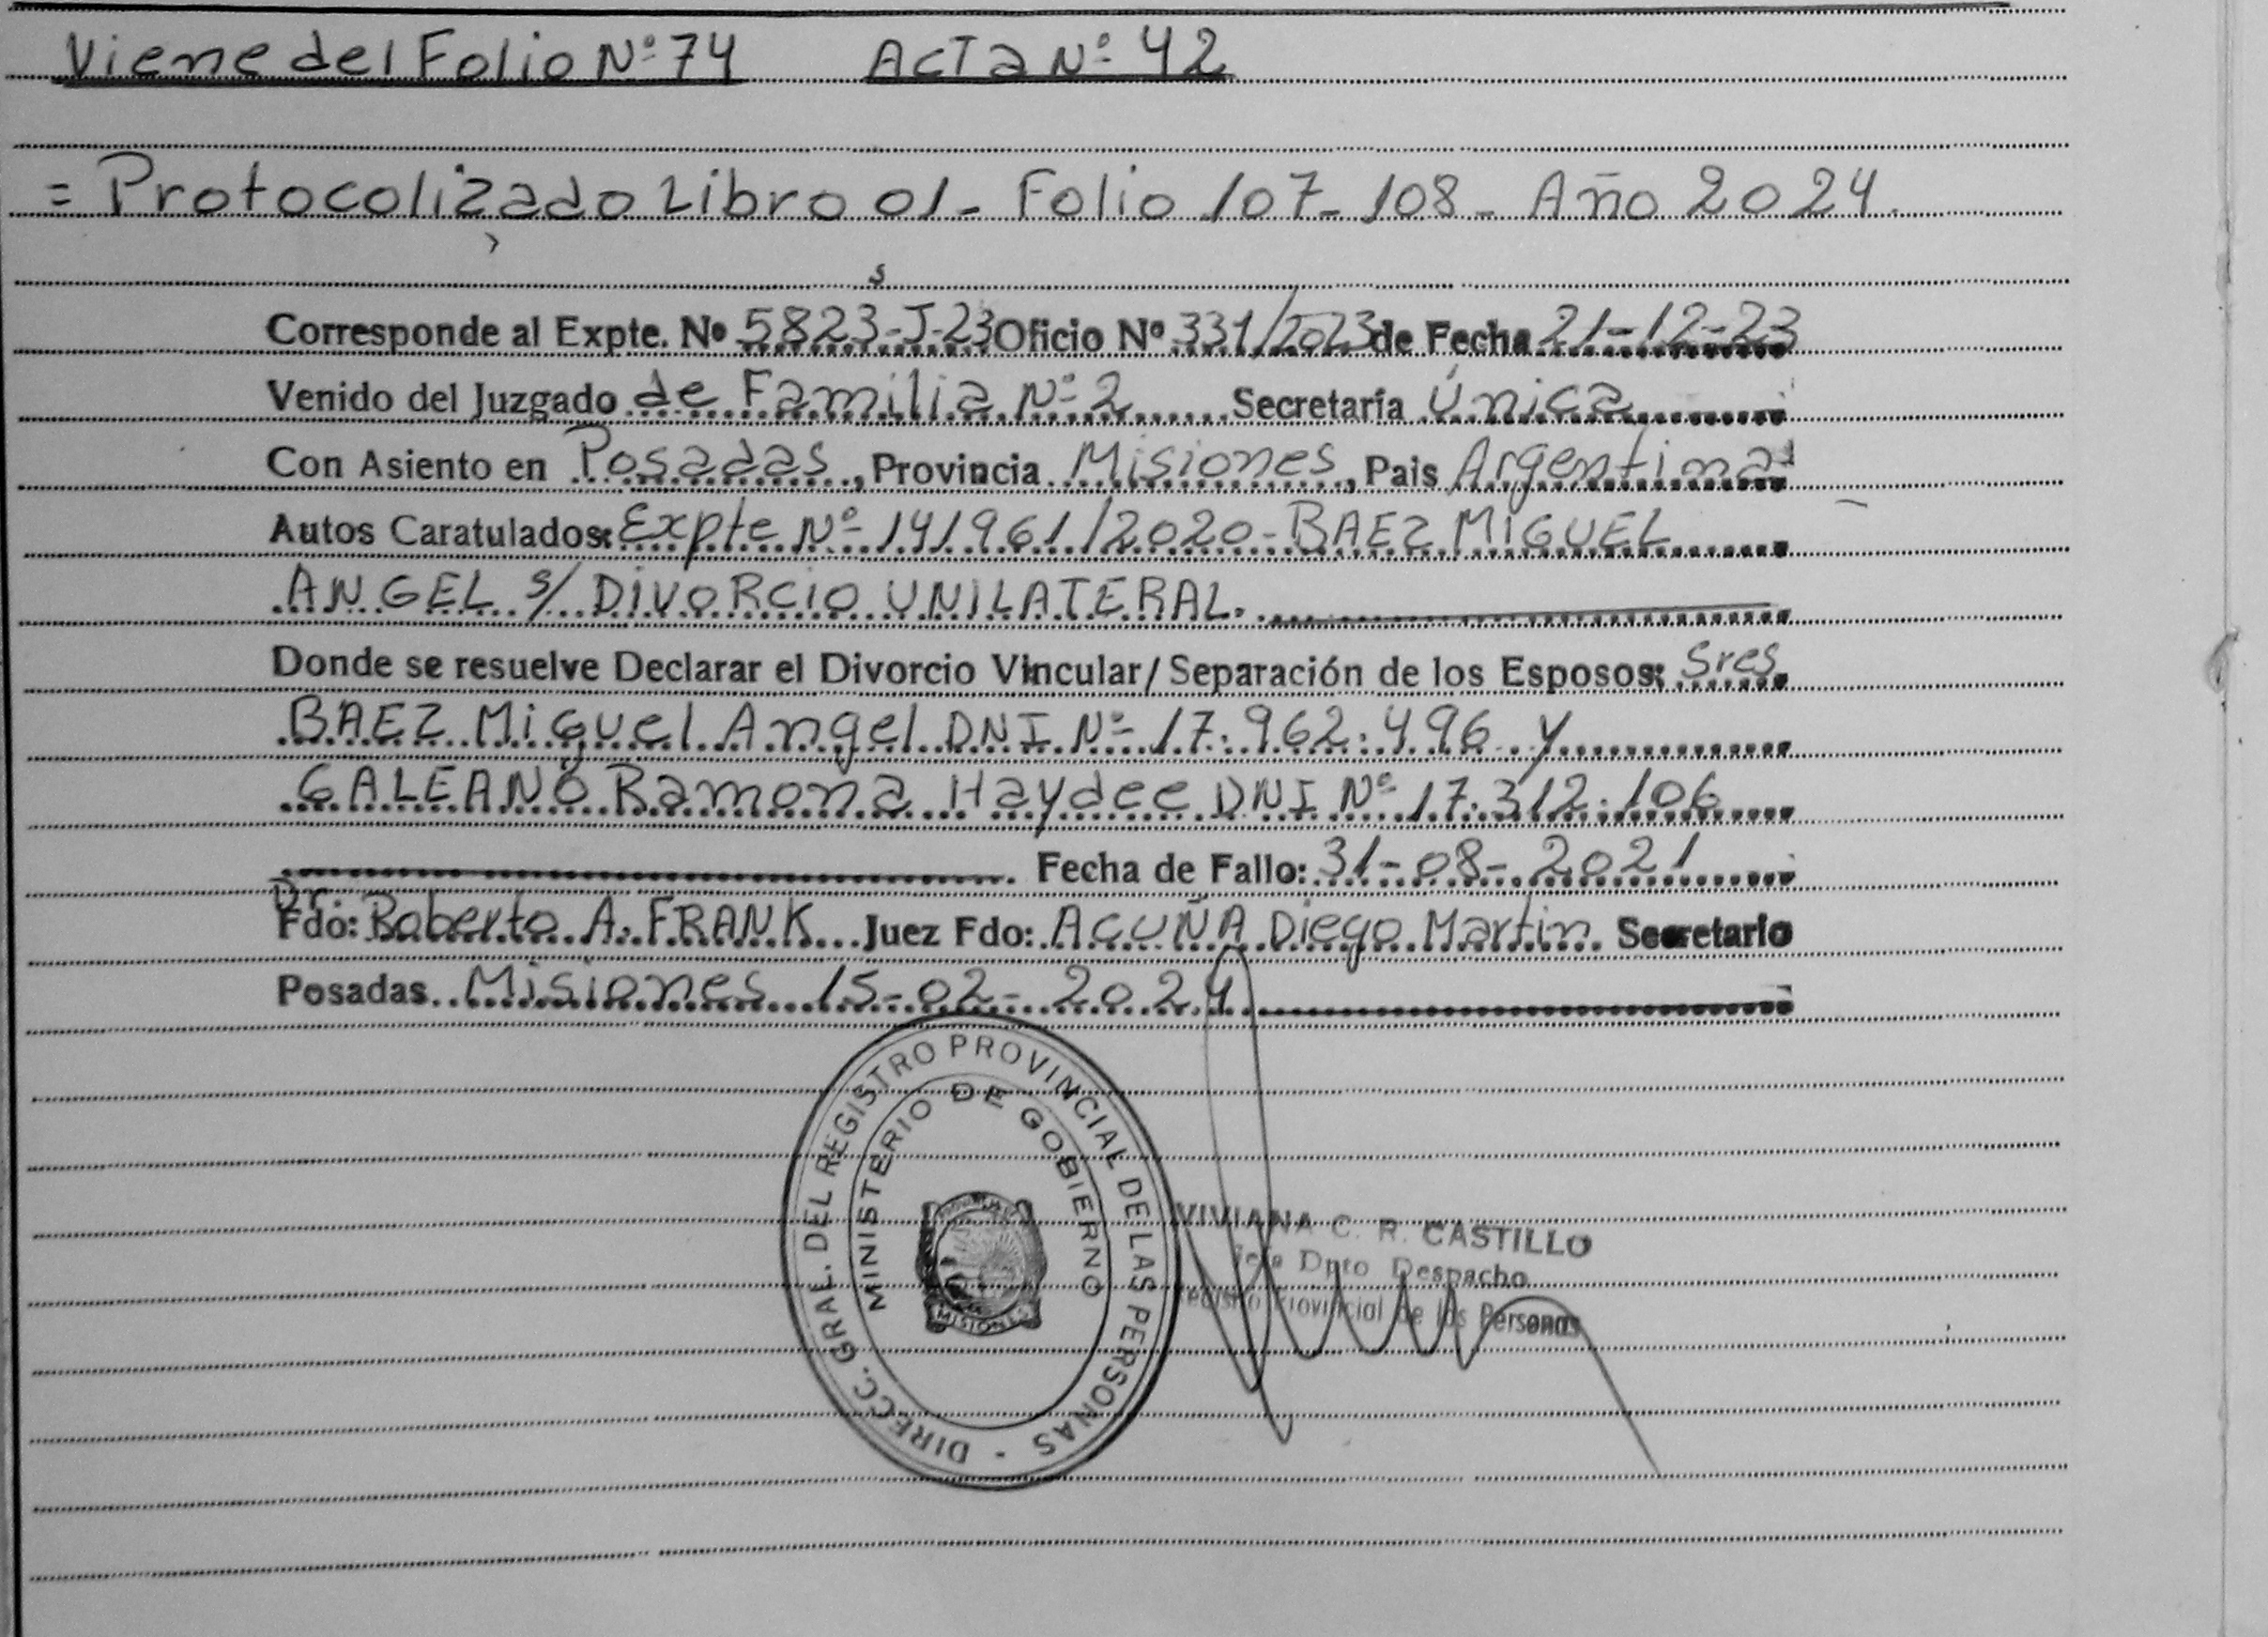 Viene del Folio Nº 74 Acta Nº 42
= Protocolizado Libro 01 - Folio 107 - 108 - Año 2024.
Corresponde al Expte. Nº 5823-J-23 Oficio Nº 331/2023 de Fecha 21-12-23
Venido del Juzgado de Familia Nº 2 Secretaría Única
Con Asiento en Posadas, Provincia Misiones, Pais Argentina
Autos Caratulados: Expte Nº 141961/2020 - BAEZ MIGUEL
ANGEL s/ DIVORCIO UNILATERAL.
Donde se resuelve Declarar el Divorcio Vincular/Separación de los Esposos: Sres
BAEZ Miguel Angel DNI Nº 17.962.496 y
GALEANO Ramona Haydee DNI Nº 17.312.106
Fecha de Fallo: 31-08-2021
Fdo: Dr. Roberto A. FRANK Juez Fdo: ACUÑA Diego Martin. Secretario
Posadas Misiones 15-02-2024
DIRECC. GRAL. DEL REGISTRO PROVINCIAL DE LAS PERSONAS -
MINISTERIO DE GOBIERNO
MISIONES
VIVIANA C. R. CASTILLO
Jefa Dpto Despacho
Registro Provincial de las Personas